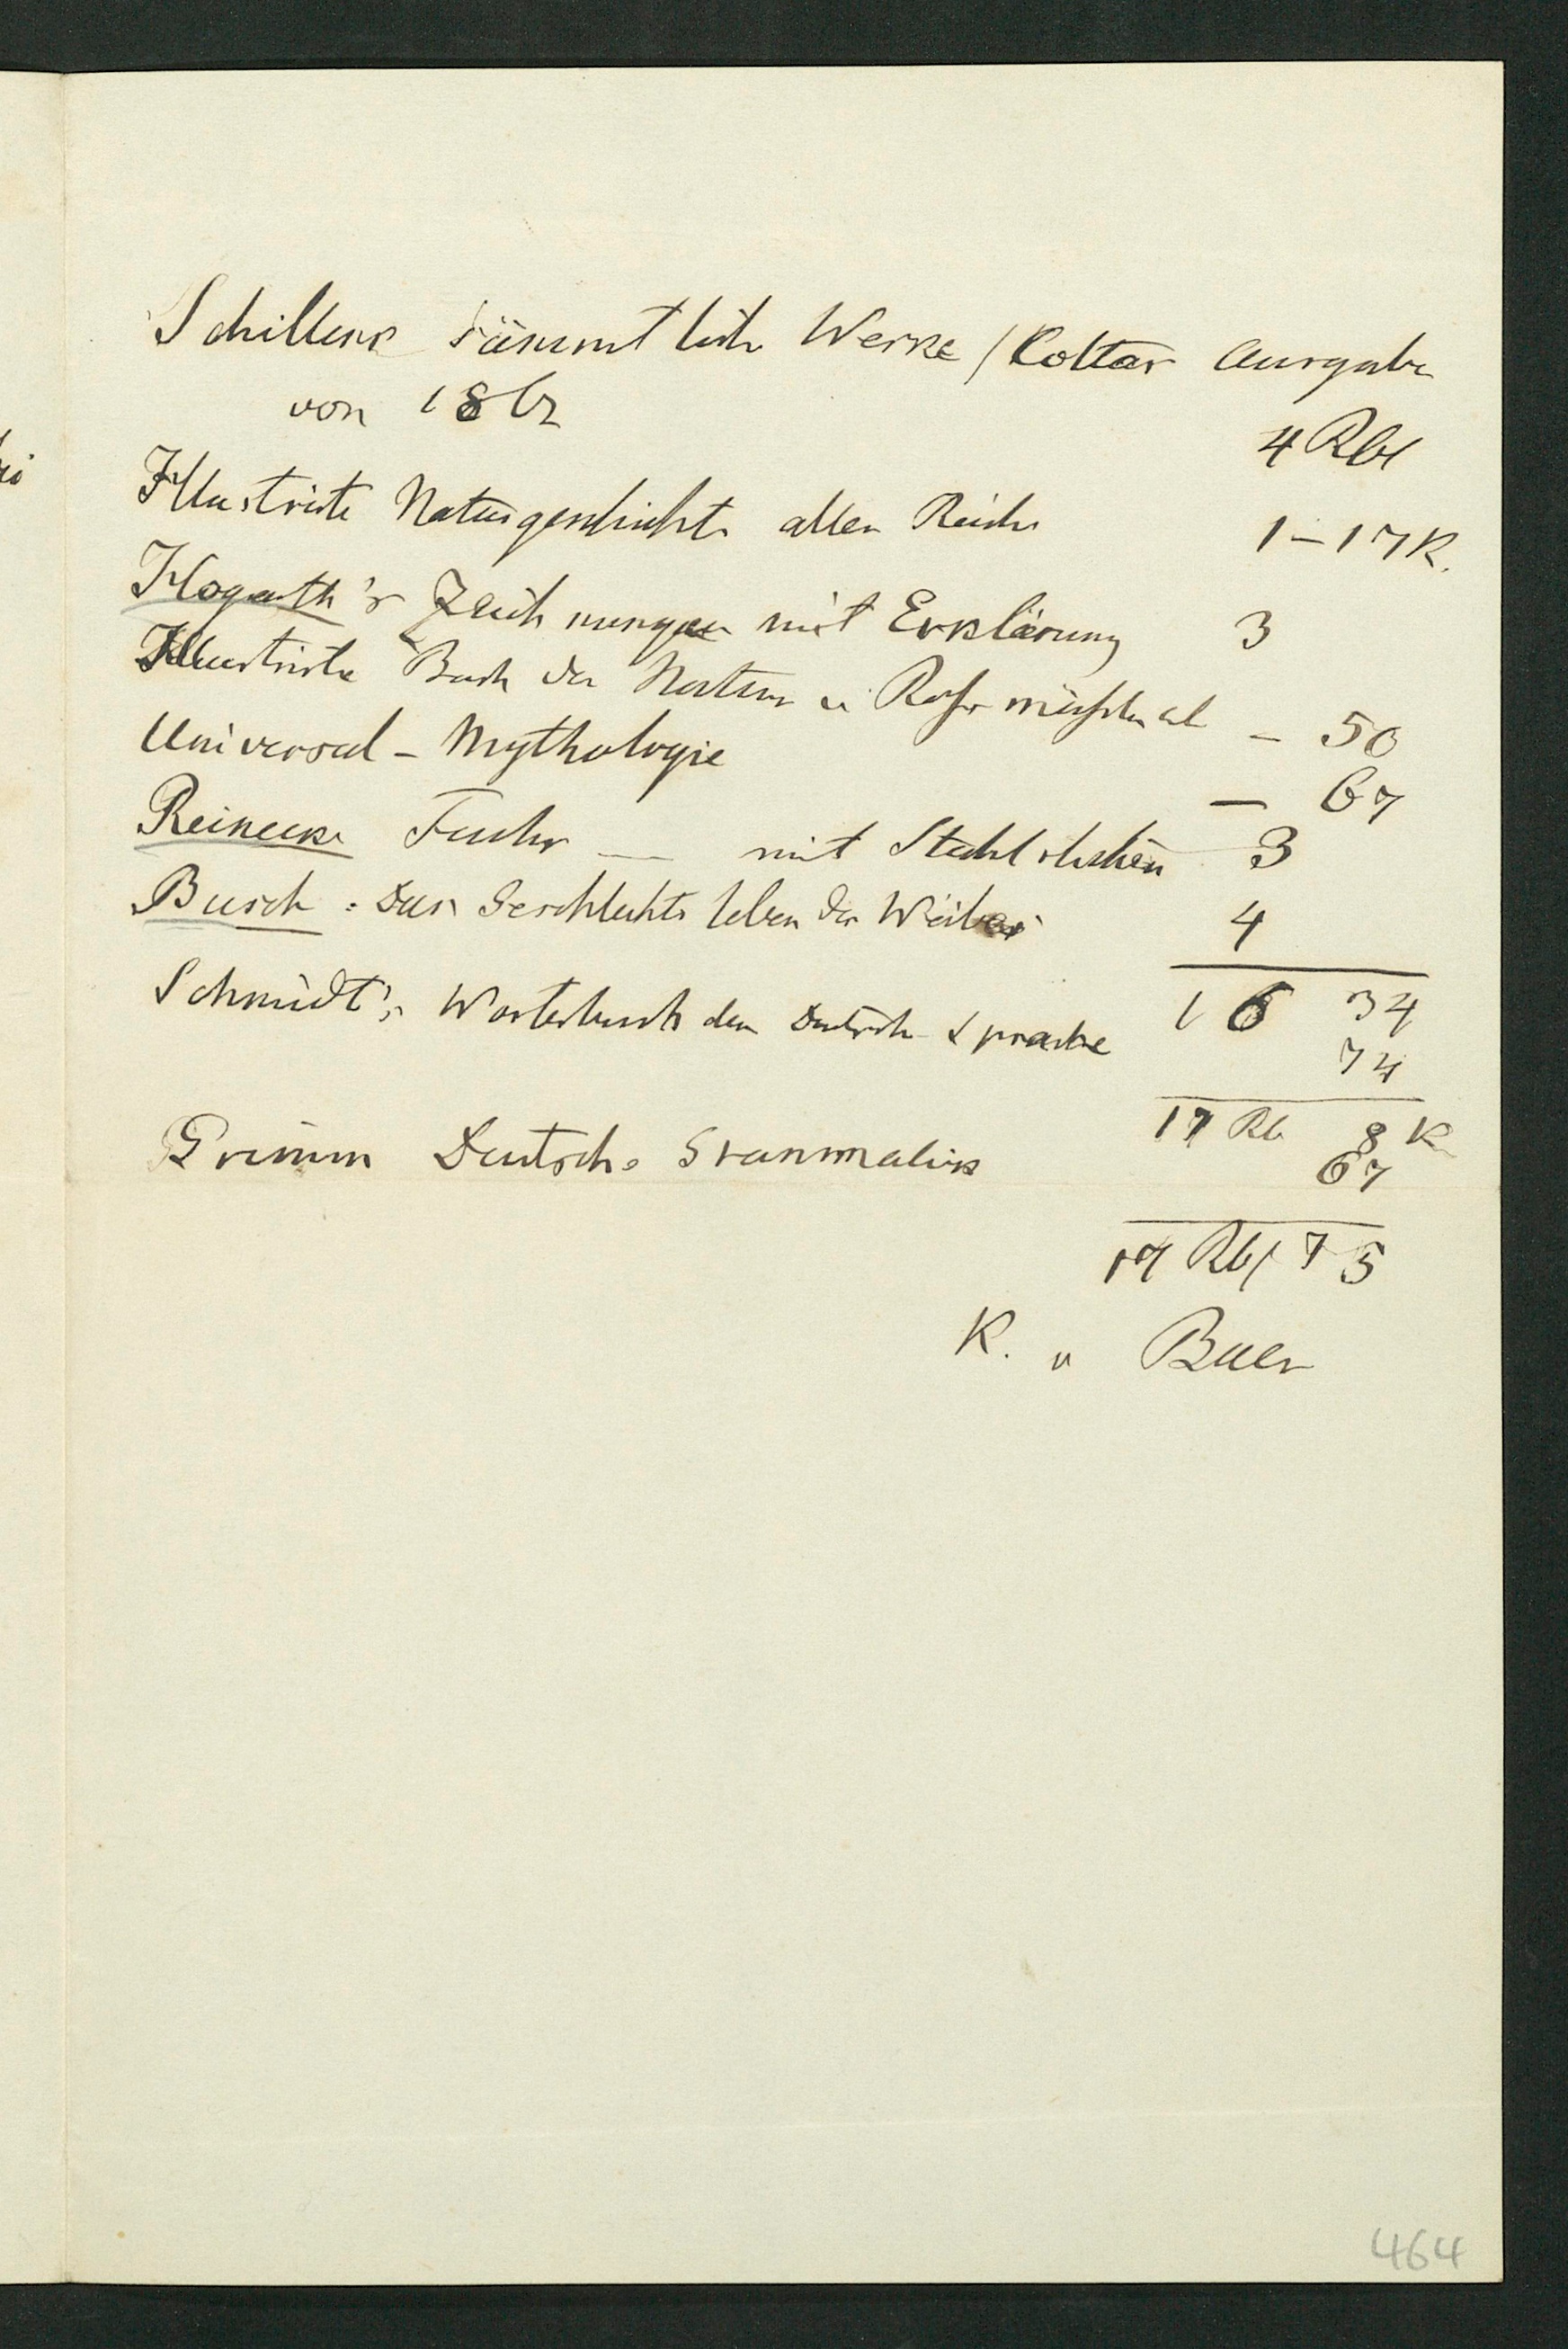 Schillers sämmtliche Werke / Cottas Ausgabe
von 1862 4 Rbl
Illustrirte Naturgeschichte aller Reiche 1 – 17 K.
Hogarth's Zeichnungen mit Erklärung 3
Illustrirte Buch der Natur v – 50
Universal – Mythologie — 67
Reinecke Fuchs — mit Stahlstichen 3
Busch : Das Geschlechtsleben des Weibes 4
16 34
Schmidt's Worterbuch der Deutsch Sprache 74
17 Rb 8 K
Grimm Deutsche Grammatik 67
17 Rbl 75
K. v Baer
464